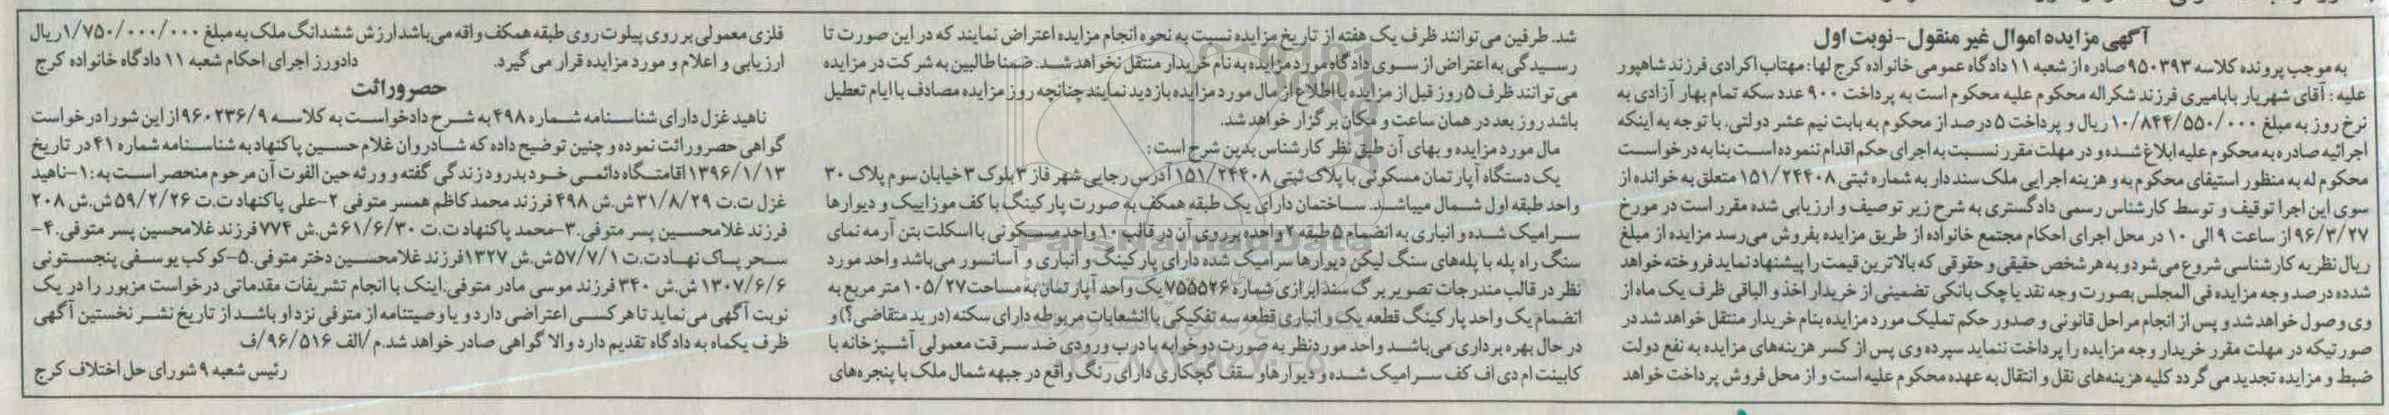 آگهی مزایده اموال غیر منقول - نوبت اول
به موجب پرونده کلاسه ۹۵۰۳۹۳ صادره از شعبه ۱۱ دادگاه عمومی خانواده کرج لها: مهتاب اکرادی فرزند شاهپور
علیه: آقای شهریار بابامیری فرزند شکراله محکوم علیه محکوم است به پرداخت ۹۰۰ عدد سکه تمام بهار آزادی به
نرخ روز به مبلغ ۱۰/۸۴۴/۵۵۰/۰۰۰ ریال و پرداخت ۵ درصد از محکوم به بابت نیم عشر دولتی. با توجه به اینکه
اجرائیه صادره به محکوم علیه ابلاغ شده و در مهلت مقرر نسبت به اجرای حکم اقدام ننموده است بنا به درخواست
محکوم له به منظور استیفای محکوم به و هزینه اجرایی ملک سند دار به شماره ثبتی ۱۵۱/۲۴۴۰۸ متعلق به خوانده از
سوی این اجرا توقیف و توسط کارشناس رسمی دادگستری به شرح زیر توصیف و ارزیابی شده مقرر است در مورخ
۹۶/۳/۲۷ از ساعت ۹ الی ۱۰ در محل اجرای احکام مجتمع خانواده از طریق مزایده بفروش می‌رسد مزایده از مبلغ
ریال نظریه کارشناسی شروع می‌شود و به هر شخص حقیقی و حقوقی که بالاترین قیمت را پیشنهاد نماید فروخته خواهد
شد ده درصد وجه مزایده فی المجلس بصورت وجه نقد یا چک بانکی تضمینی از خریدار اخذ و الباقی ظرف یک ماه از
وی وصول خواهد شد و پس از انجام مراحل قانونی و صدور حکم تملیک مورد مزایده بنام خریدار منتقل خواهد شد در
صورتیکه در مهلت مقرر خریدار وجه مزایده را پرداخت ننماید سپرده وی پس از کسر هزینه‌های مزایده به نفع دولت
ضبط و مزایده تجدید می گردد کلیه هزینه‌های نقل و انتقال به عهده محکوم علیه است و از محل فروش پرداخت خواهد
شد. طرفین می‌توانند ظرف یک هفته از تاریخ مزایده نسبت به نحوه انجام مزایده اعتراض نمایند که در این صورت تا
رسیدگی به اعتراض از سوی دادگاه مورد مزایده به نام خریدار منتقل نخواهد شد. ضمنا طالبین به شرکت در مزایده
می توانند ظرف ۵ روز قبل از مزایده با اطلاع از مال مورد مزایده بازدید نمایند چنانچه روز مزایده مصادف با ایام تعطیل
باشد روز بعد در همان ساعت و مکان برگزار خواهد شد.
مال مورد مزایده و بهای آن طبق نظر کارشناس بدین شرح است:
یک دستگاه آپارتمان مسکونی با پلاک ثبتی ۱۵۱/۲۴۴۰۸ آدرس رجایی شهر فاز ۳ بلوک ۳ خیابان سوم پلاک ۳۰
واحد طبقه اول شمال میباشد. ساختمان دارای یک طبقه همکف به صورت پارکینگ با کف موزاییک و دیوارها
سرامیک شده و انباری به انضمام ۵ طبقه ۲ واحده بر روی آن در قالب ۱۰ واحد مسکونی با اسکلت بتن آرمه نمای
سنگ راه پله با پله‌های سنگ لیکن دیوارها سرامیک شده دارای پارکینگ و انباری و آسانسور می‌باشد واحد مورد
نظر در قالب مندرجات تصویر برگ سند ابرازی شماره ۷۵۵۵۲۶ یک واحد آپارتمان به مساحت ۱۰۵/۲۷ متر مربع به
انضمام یک واحد پارکینگ قطعه یک و انباری قطعه سه تفکیکی با انشعابات مربوطه دارای سکنه (در ید متقاضی؟) و
در حال بهره برداری می‌باشد واحد موردنظر به صورت دوخوابه با درب ورودی ضد سرقت معمولی آشپزخانه با
کابینت ام دی اف کف سرامیک شده و دیوارها و سقف گچکاری دارای رنگ واقع در جبهه شمال ملک با پنجره‌های
فلزی معمولی بر روی پیلوت روی طبقه همکف واقه می‌باشد ارزش ششدانگ ملک به مبلغ ۱/۷۵۰/۰۰۰/۰۰۰ ریال
ارزیابی و اعلام و مورد مزایده قرار می گیرد. دادورز اجرای احکام شعبه ۱۱ دادگاه خانواده کرج
حصر وراثت
ناهید غزل دارای شناسنامه شماره ۴۹۸ به شرح دادخواست به کلاسه ۹۶۰۲۳۶/۹ از این شورا درخواست
گواهی حصر وراثت نموده و چنین توضیح داده که شادروان غلام حسین پاکنهاد به شناسنامه شماره ۴۱ در تاریخ
۱۳۹۶/۱/۱۳ اقامتگاه دائمی خود بدرود زندگی گفته و ورثه حین الفوت آن مرحوم منحصر است به: ۱-ناهید
غزل ت.ت ۳۱/۸/۲۹ ش.ش ۴۹۸ فرزند محمد کاظم همسر متوفی ۲-علی پاکنهاد ت.ت ۵۹/۲/۲۶ ش.ش ۲۰۸
فرزند غلامحسین پسر متوفی. ۳-محمد پاکنهاد ت.ت ۶۱/۶/۳۰ ش.ش ۷۷۴ فرزند غلامحسین پسر متوفی. ۴-
سحر پاک نهاد ت.ت ۵۷/۷/۱ ش.ش ۱۳۲۷ فرزند غلامحسین دختر متوفی. ۵-کوکب یوسفی پنجستونی
۱۳۰۷/۶/۶ ش.ش ۳۴۰ فرزند موسی مادر متوفی. اینک با انجام تشریفات مقدماتی درخواست مزبور را در یک
نوبت آگهی می نماید تا هر کسی اعتراضی دارد و یا وصیتنامه از متوفی نزد او باشد از تاریخ نشر نخستین آگهی
ظرف یکماه به دادگاه تقدیم دارد والا گواهی صادر خواهد شد. م/الف ۹۶/۵۱۶/ف
رئیس شعبه ۹ شورای حل اختلاف کرج
ParsNamadData